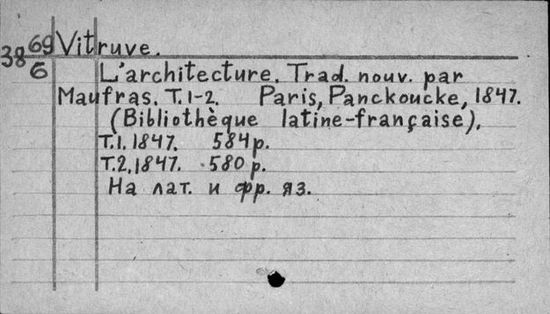 38 69/6
Vitruve.
L'architecture. Trad. nouv. par
Maufras. T.1-2. Paris, Panckoucke, 1847.
(Bibliothèque latine-française).
T.1. 1847. 584 p.
T.2. 1847. 580 p.
На лат. и фр. яз.